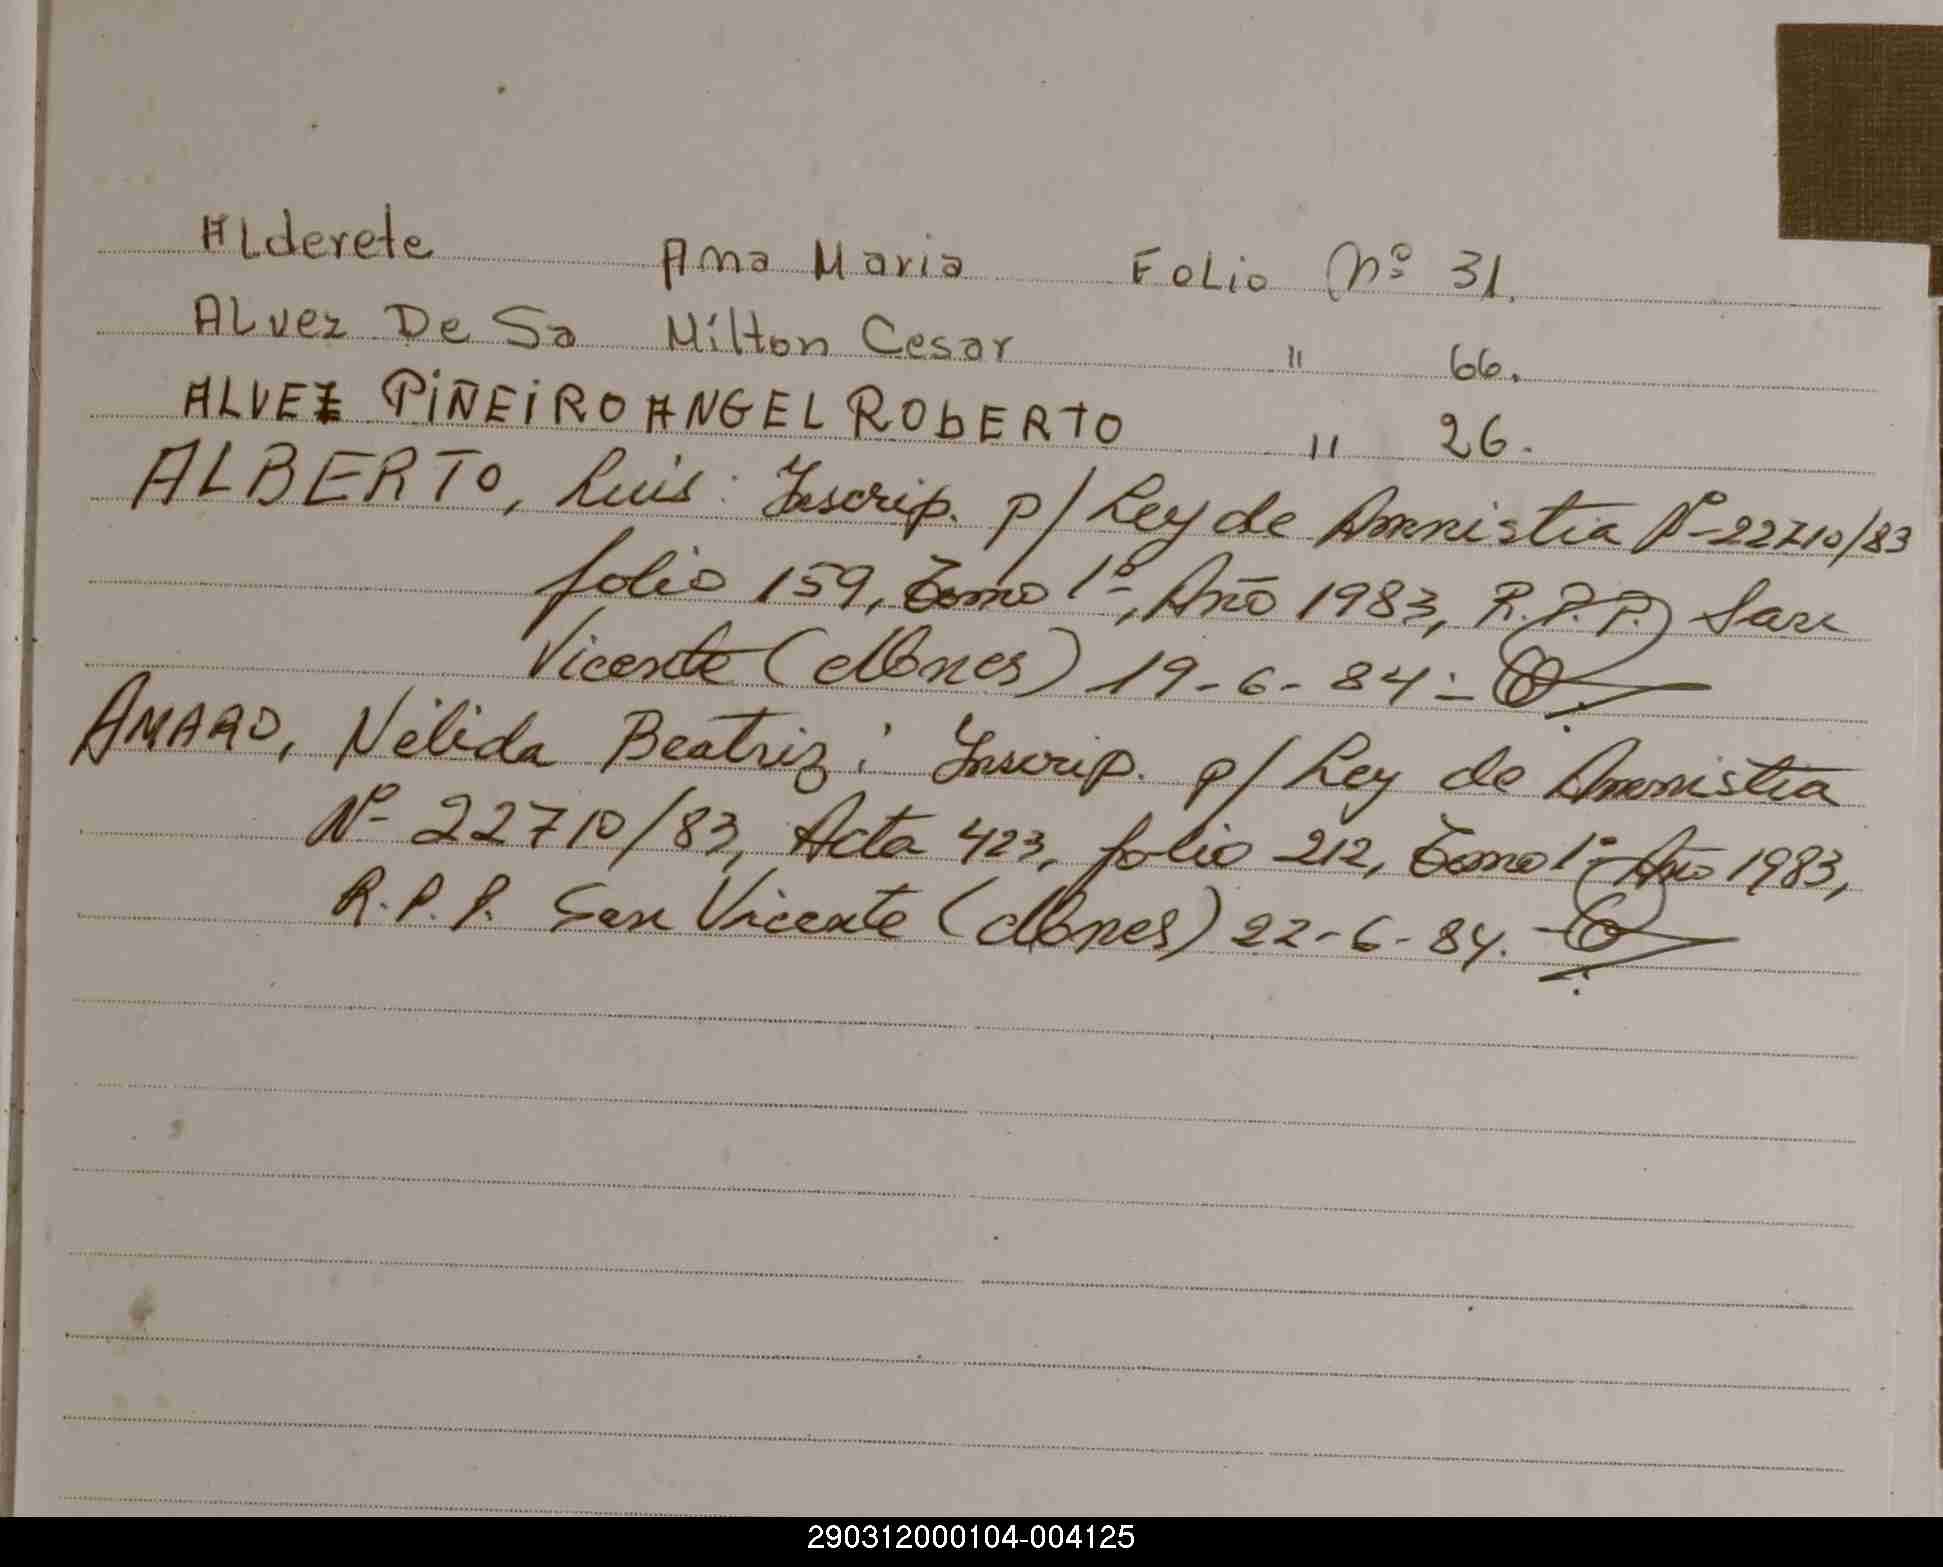 Alderete Ana Maria Folio Nº 31.
Alvez De Sa Milton Cesar " 66.
ALVEZ PIÑEIRO ANGEL ROBERTO " 26.
ALBERTO, Luis: Inscrip. p/ Ley de Amnistia Nº 22710/83
folio 159, Tomo 1º, Año 1983, R.P.P. San
Vicente (Mnes) 19-6-84.-
AMARO, Nélida Beatriz: Inscrip. p/ Ley de Amnistia
Nº 22710/83, Acta 423, folio 212, Tomo 1º- Año 1983,
R.P.P. San Vicente (Mnes) 22-6-84.-
290312000104-004125